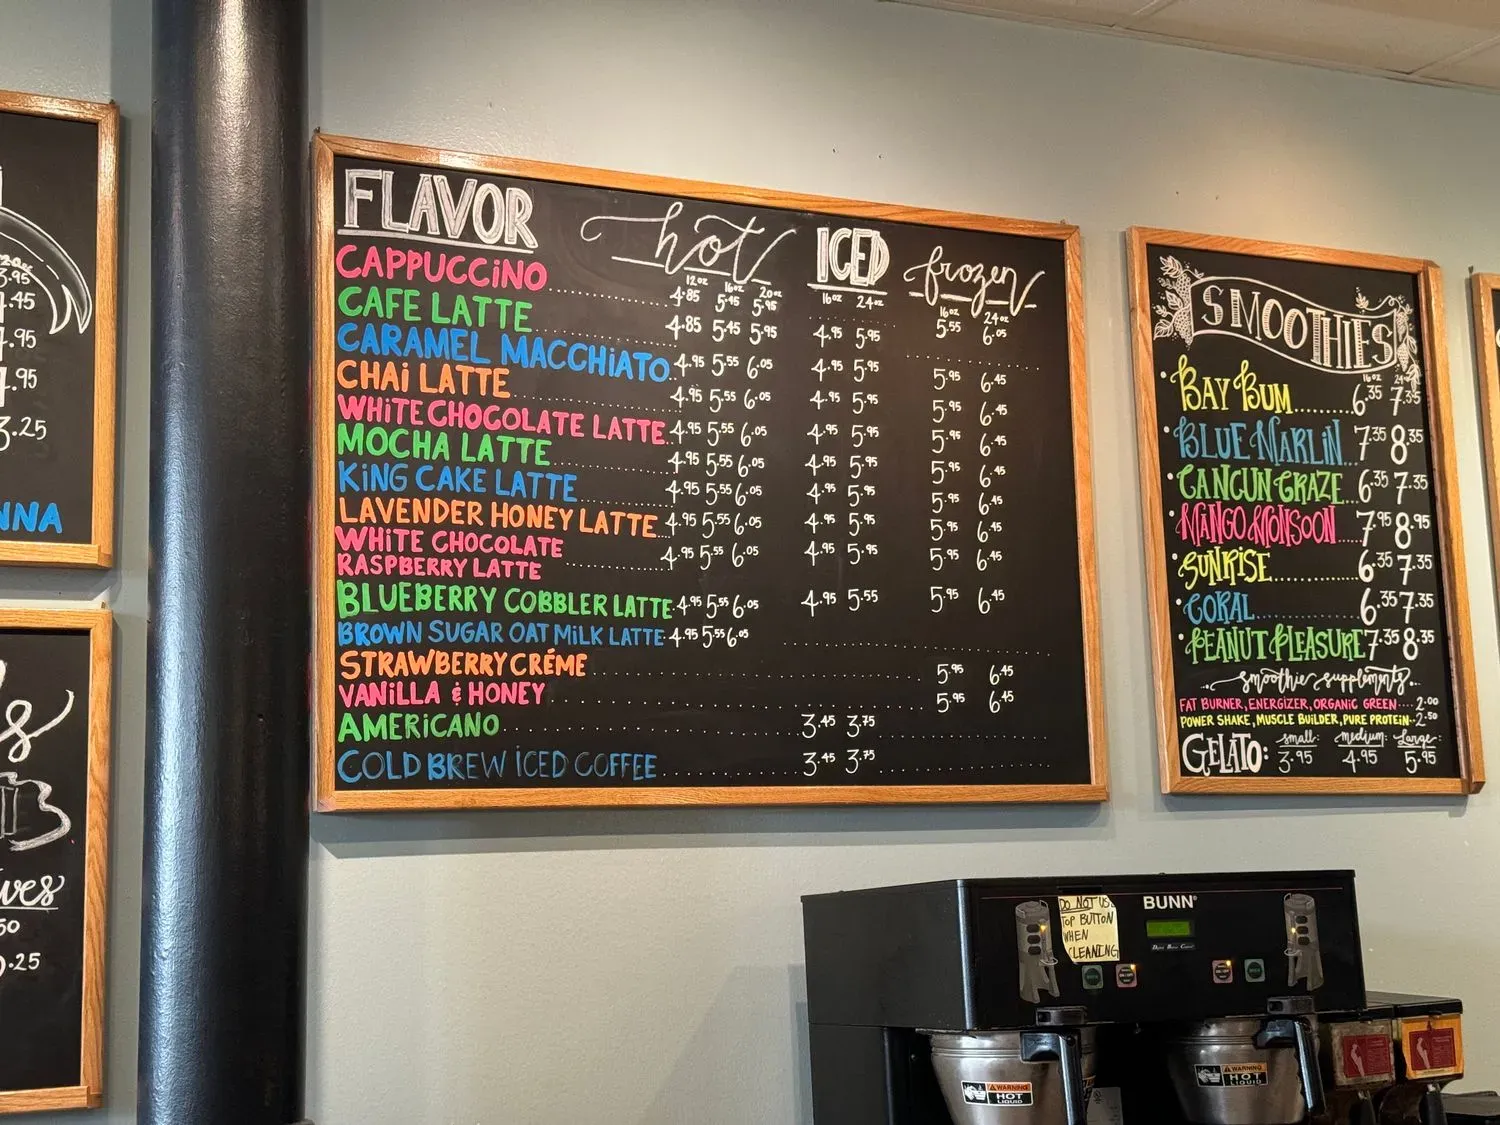 3.95
.45
.95
.95
3.25
NNA
ves
50
.25
FLAVOR hot ICED frozen
12oz 16oz 20oz 16oz 24oz 16oz 24oz
CAPPUCCINO 4.85 5.45 5.95 5.55 6.05
CAFE LATTE 4.85 5.45 5.95 4.95 5.95
CARAMEL MACCHIATO 4.95 5.55 6.05 4.95 5.95 5.95 6.45
CHAI LATTE 4.95 5.55 6.05 4.95 5.95 5.95 6.45
WHITE CHOCOLATE LATTE 4.95 5.55 6.05 4.95 5.95 5.95 6.45
MOCHA LATTE 4.95 5.55 6.05 4.95 5.95 5.95 6.45
KING CAKE LATTE 4.95 5.55 6.05 4.95 5.95 5.95 6.45
LAVENDER HONEY LATTE 4.95 5.55 6.05 4.95 5.95 5.95 6.45
WHITE CHOCOLATE
RASPBERRY LATTE 4.95 5.55 6.05 4.95 5.95 5.95 6.45
BLUEBERRY COBBLER LATTE 4.95 5.55 6.05 4.95 5.55 5.95 6.45
BROWN SUGAR OAT MILK LATTE 4.95 5.55 6.05
STRAWBERRY CRÉME 5.95 6.45
VANILLA & HONEY 5.95 6.45
AMERICANO 3.45 3.75
COLD BREW ICED COFFEE 3.45 3.75
SMOOTHIES
16oz 24oz
BAY BUM 6.35 7.35
BLUE MARLIN 7.35 8.35
CANCUN CRAZE 6.35 7.35
MANGO MONSOON 7.95 8.95
SUNRISE 6.35 7.35
CORAL 6.35 7.35
PEANUT PLEASURE 7.35 8.35
smoothie supplements
FAT BURNER, ENERGIZER, ORGANIC GREEN 2.00
POWER SHAKE, MUSCLE BUILDER, PURE PROTEIN 2.50
GELATO: small: medium: large:
3.95 4.95 5.95
DO NOT USE
TOP BUTTON
WHEN
CLEANING
BUNN
WARNING
HOT
LIQUID
WARNING
HOT
LIQUID